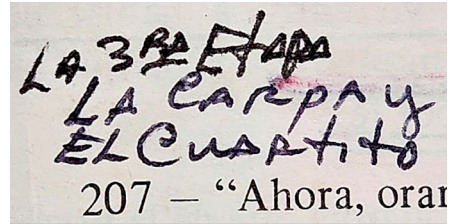 LA 3RA EtApA
LA CARpA y
EL CuARtito
207 – “Ahora, orar